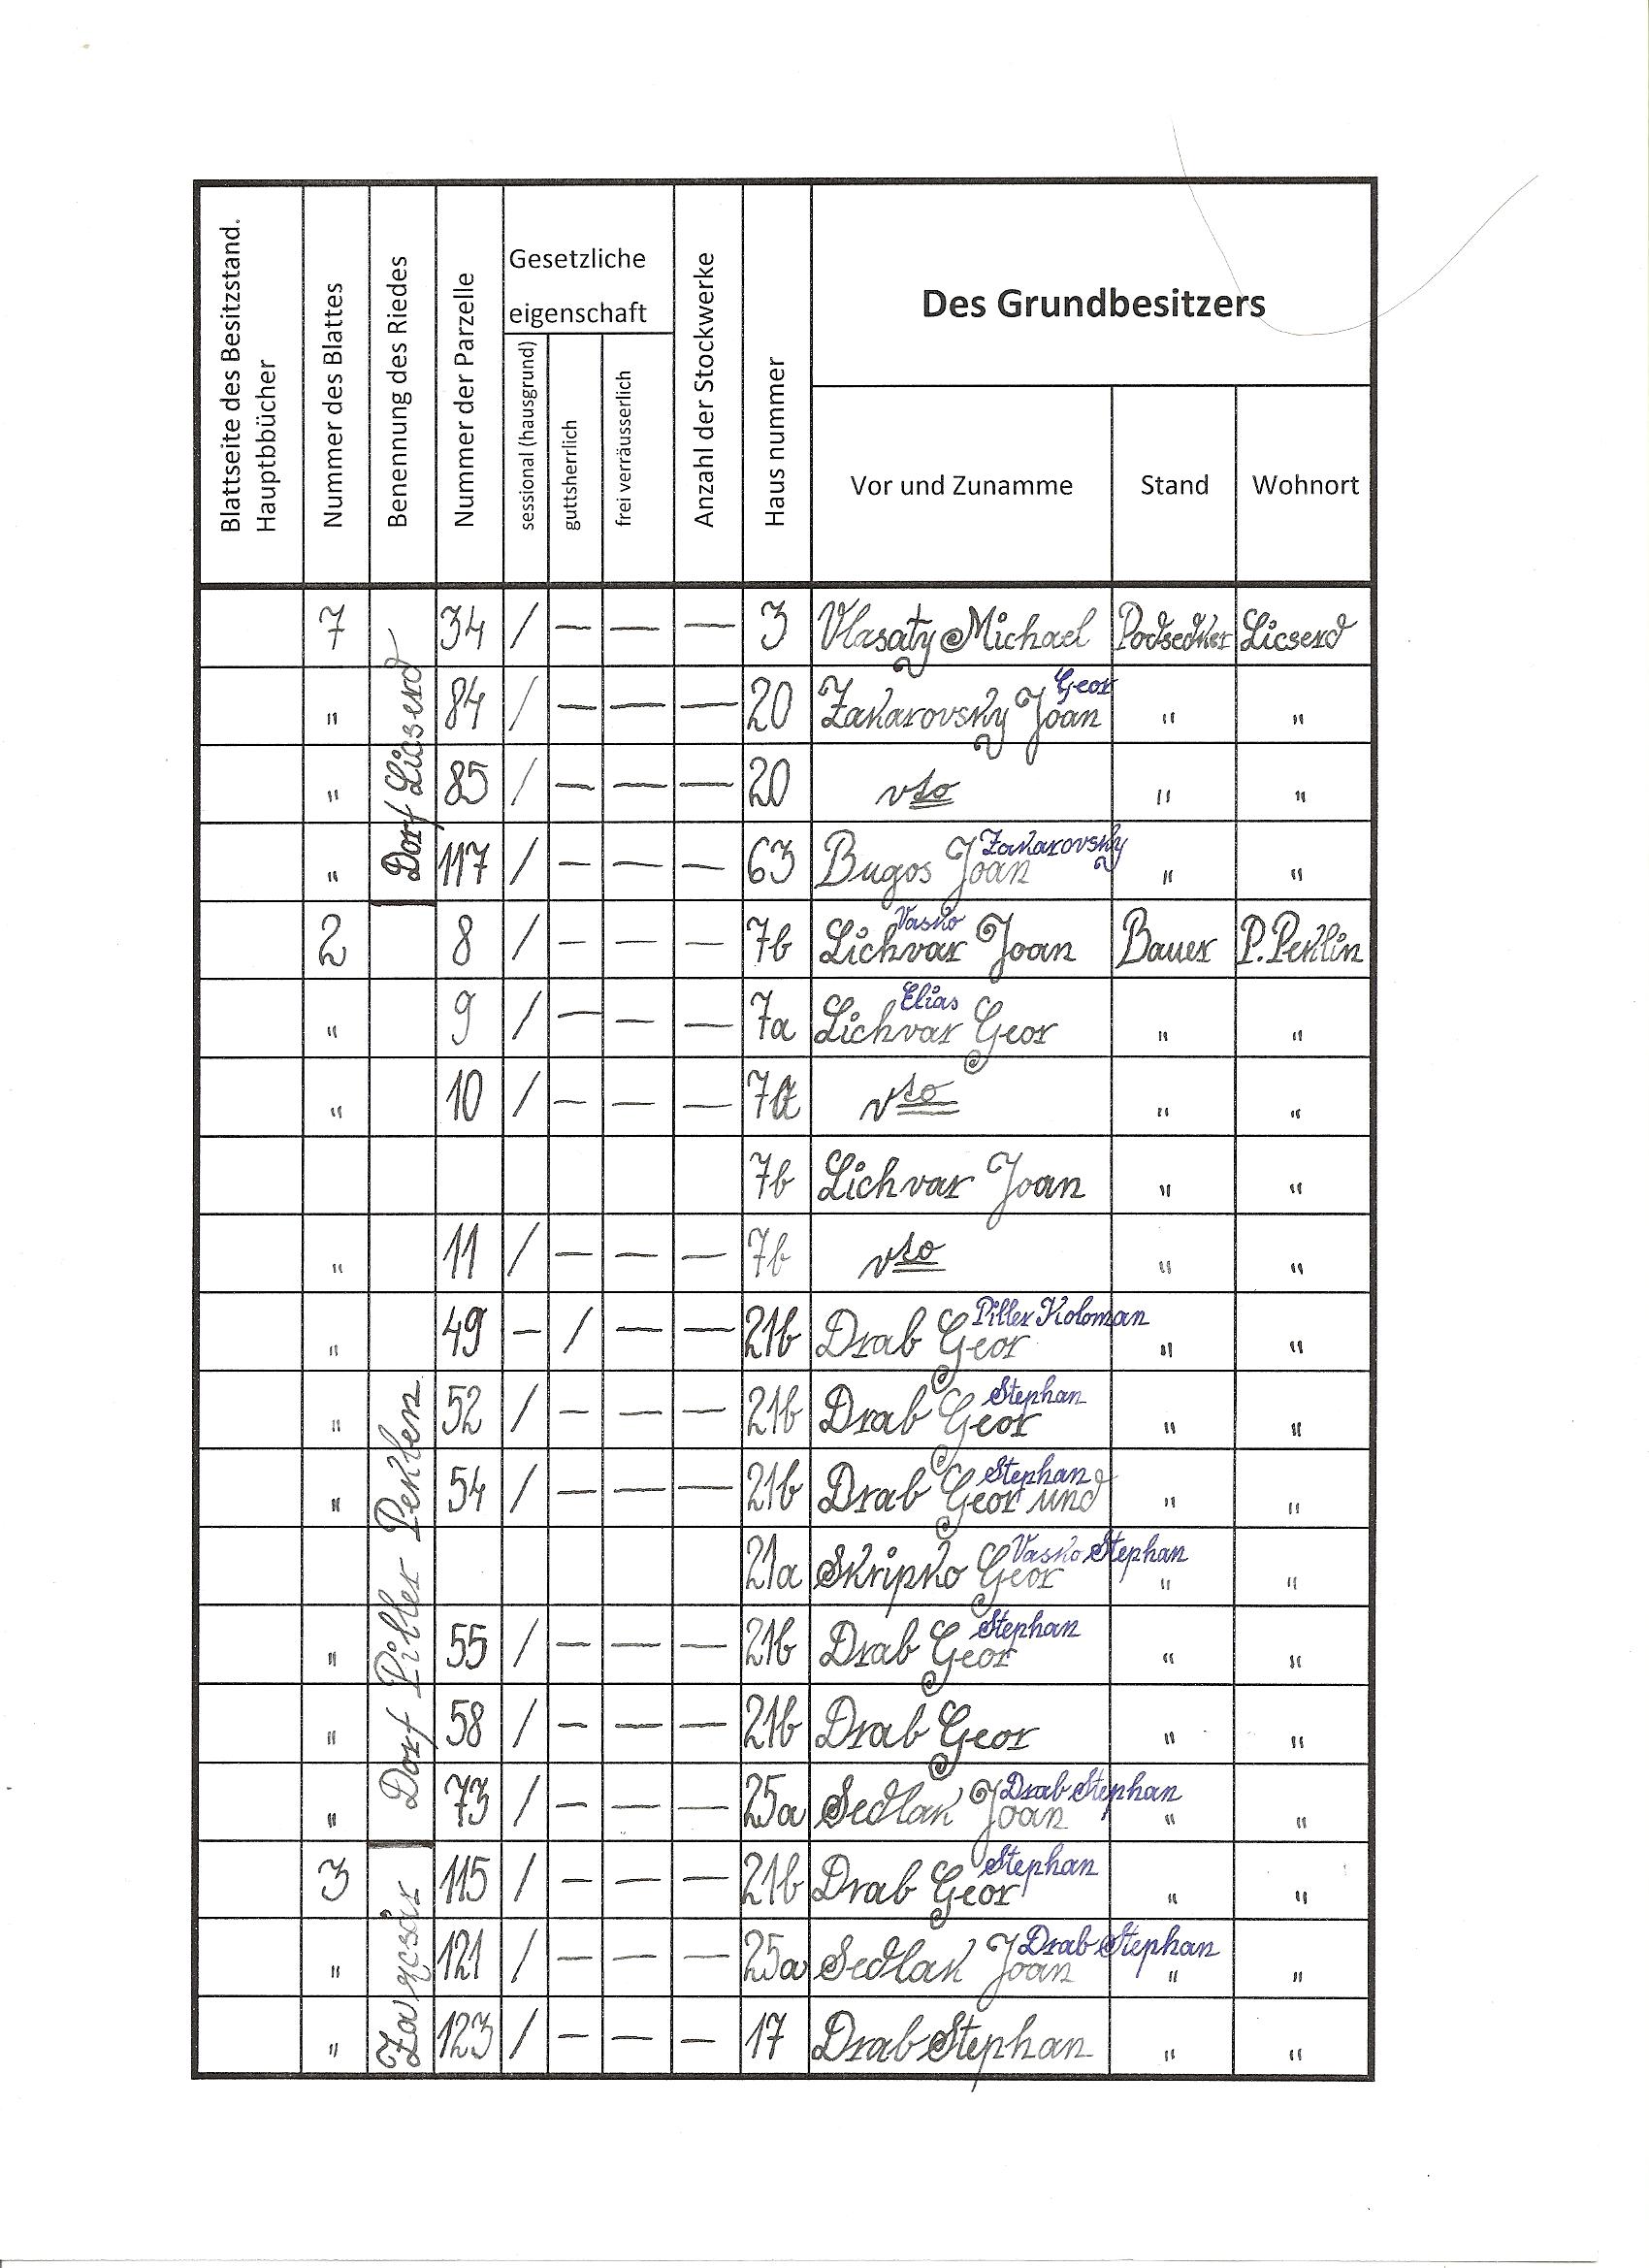 Blattseite des Besitzstand.
Hauptbbücher
Nummer des Blattes
Benennung des Riedes
Nummer der Parzelle
Gesetzliche
eigenschaft
sessional (hausgrund)
guttsherrlich
frei verräusserlich
Anzahl der Stockwerke
Haus nummer
Des Grundbesitzers
Vor und Zunamme
Stand
Wohnort
Dorf Licserd
7 34 / — — — 3 Vlasaty Michael Podsedker Licserd
Geor
" 84 / — — — 20 Zakarovsky Joan " "
" 85 / — — — 20 vto " "
Zakarovsky
" 117 / — — — 63 Bugos Joan " "
Dorf Piller Peklen
Vasko
2 8 / — — — 7b Lichvar Joan Bauer P. Peklin
Elias
" 9 / — — — 7a Lichvar Geor " "
" 10 / — — — 7a vto " "
7b Lichvar Joan " "
" 11 / — — — 7b vto " "
Piller Koloman
" 49 — / — — 21b Drab Geor " "
Stephan
" 52 / — — — 21b Drab Geor " "
Stephan
" 54 / — — — 21b Drab Geor und " "
Vasko Stephan
21a Skripko Geor " "
Stephan
" 55 / — — — 21b Drab Geor " "
" 58 / — — — 21b Drab Geor " "
Drab Stephan
" 73 / — — — 25a Sedlak Joan " "
Stephan
3 115 / — — — 21b Drab Geor " "
Drab Stephan
" 121 / — — — 25a Sedlak Joan " "
" 123 / — — — 17 Drab Stephan " "